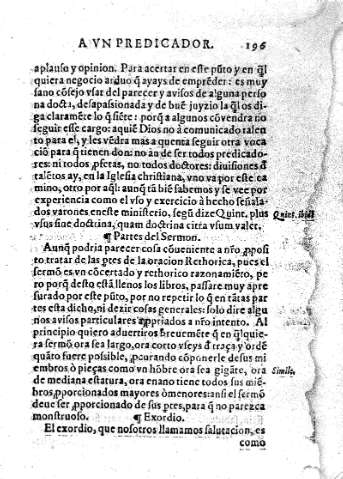 A VN PREDICADOR. 196
aplauso y opinion. Para acertar en este pũto y en q̃l
quiera negocio arduo q̃ ayays de emprẽder: es muy
sano cõsejo vsar del parecer y auisos de alguna perso
na docta, desapassionada y de buẽ juyzio la q̃l os di-
ga claramẽte lo q̃ siẽte: porq̃ a algunos cõvendra no
seguir esse cargo: aquiẽ Dios no à comunicado talen
to para el, y les vẽdra mas a quenta seguir otra voca
ciõ para q̃ tienen don: no an de ser todos predicado-
res: ni todos ꝓfetas, no todos doctores: diuisiones d̃
talẽtos ay, en la Iglesia christiana, vno va por este ca
mino, otro por aq̃l: aunq̃ tã biẽ sabemos y se vee por
experiencia como el vso y exercicio à hecho señala-
dos varones eneste ministerio, segũ dize Quint. plus
vsus sine doctrina, quam doctrina citra vsum valet.
Quint. ibid
¶ Partes del Sermon.
Aunq̃ podria parecer cosa cõueniente a nr̃o ꝓposi
to, tratar de las ptes de la oracion Rethorica, pues el
sermõ es vn cõcertado y rethorico razonamiẽto, pe
ro porq̃ desto està llenos los libros, passare muy apre
surado por este pũto, por no repetir lo q̃ en tãtas par
tes esta dicho, ni dezir cosas generales: solo dire algu
nos auisos particulares apꝓpriados a nr̃o intento. Al
principio quiero aduertiros breuemẽte q̃ en q̃lquie-
ra sermõ ora sea largo, ora corto vseys d̃ traça y ordẽ
quãto fuere possible, ꝓcurando cõponerle de sus mi
embros ò pieças como vn hõbre ora sea gigãte, ora
Simile.
de mediana estatura, ora enano tiene todos sus miẽ-
bros, ꝓporcionados mayores ò menores: ansi el sermõ
deue ser ꝓporcionado de sus ptes, para q̃ no parezca
monstruoso. ¶ Exordio.
El exordio, que nosotros llamamos salutacion, es
como